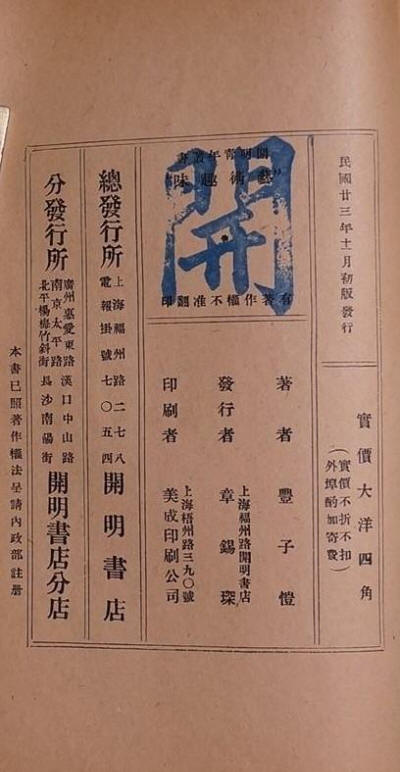 民國廿三年十一月初版發行
實價大洋四角
（實價不折不扣
外埠酌加寄費）
開
開明青年叢書
"藝術趣味"
有著作權不准翻印
著者 豐子愷
發行者 上海福州路開明書店
章錫琛
印刷者 上海梧州路三九〇號
美成印刷公司
總發行所 上海福州路二七八
電報掛號七〇五四 開明書店
分發行所 廣州惠愛東路 漢口中山路
南京太平路
北平楊梅竹斜街 長沙南陽街 開明書店分店
本書已照著作權法呈請內政部註册